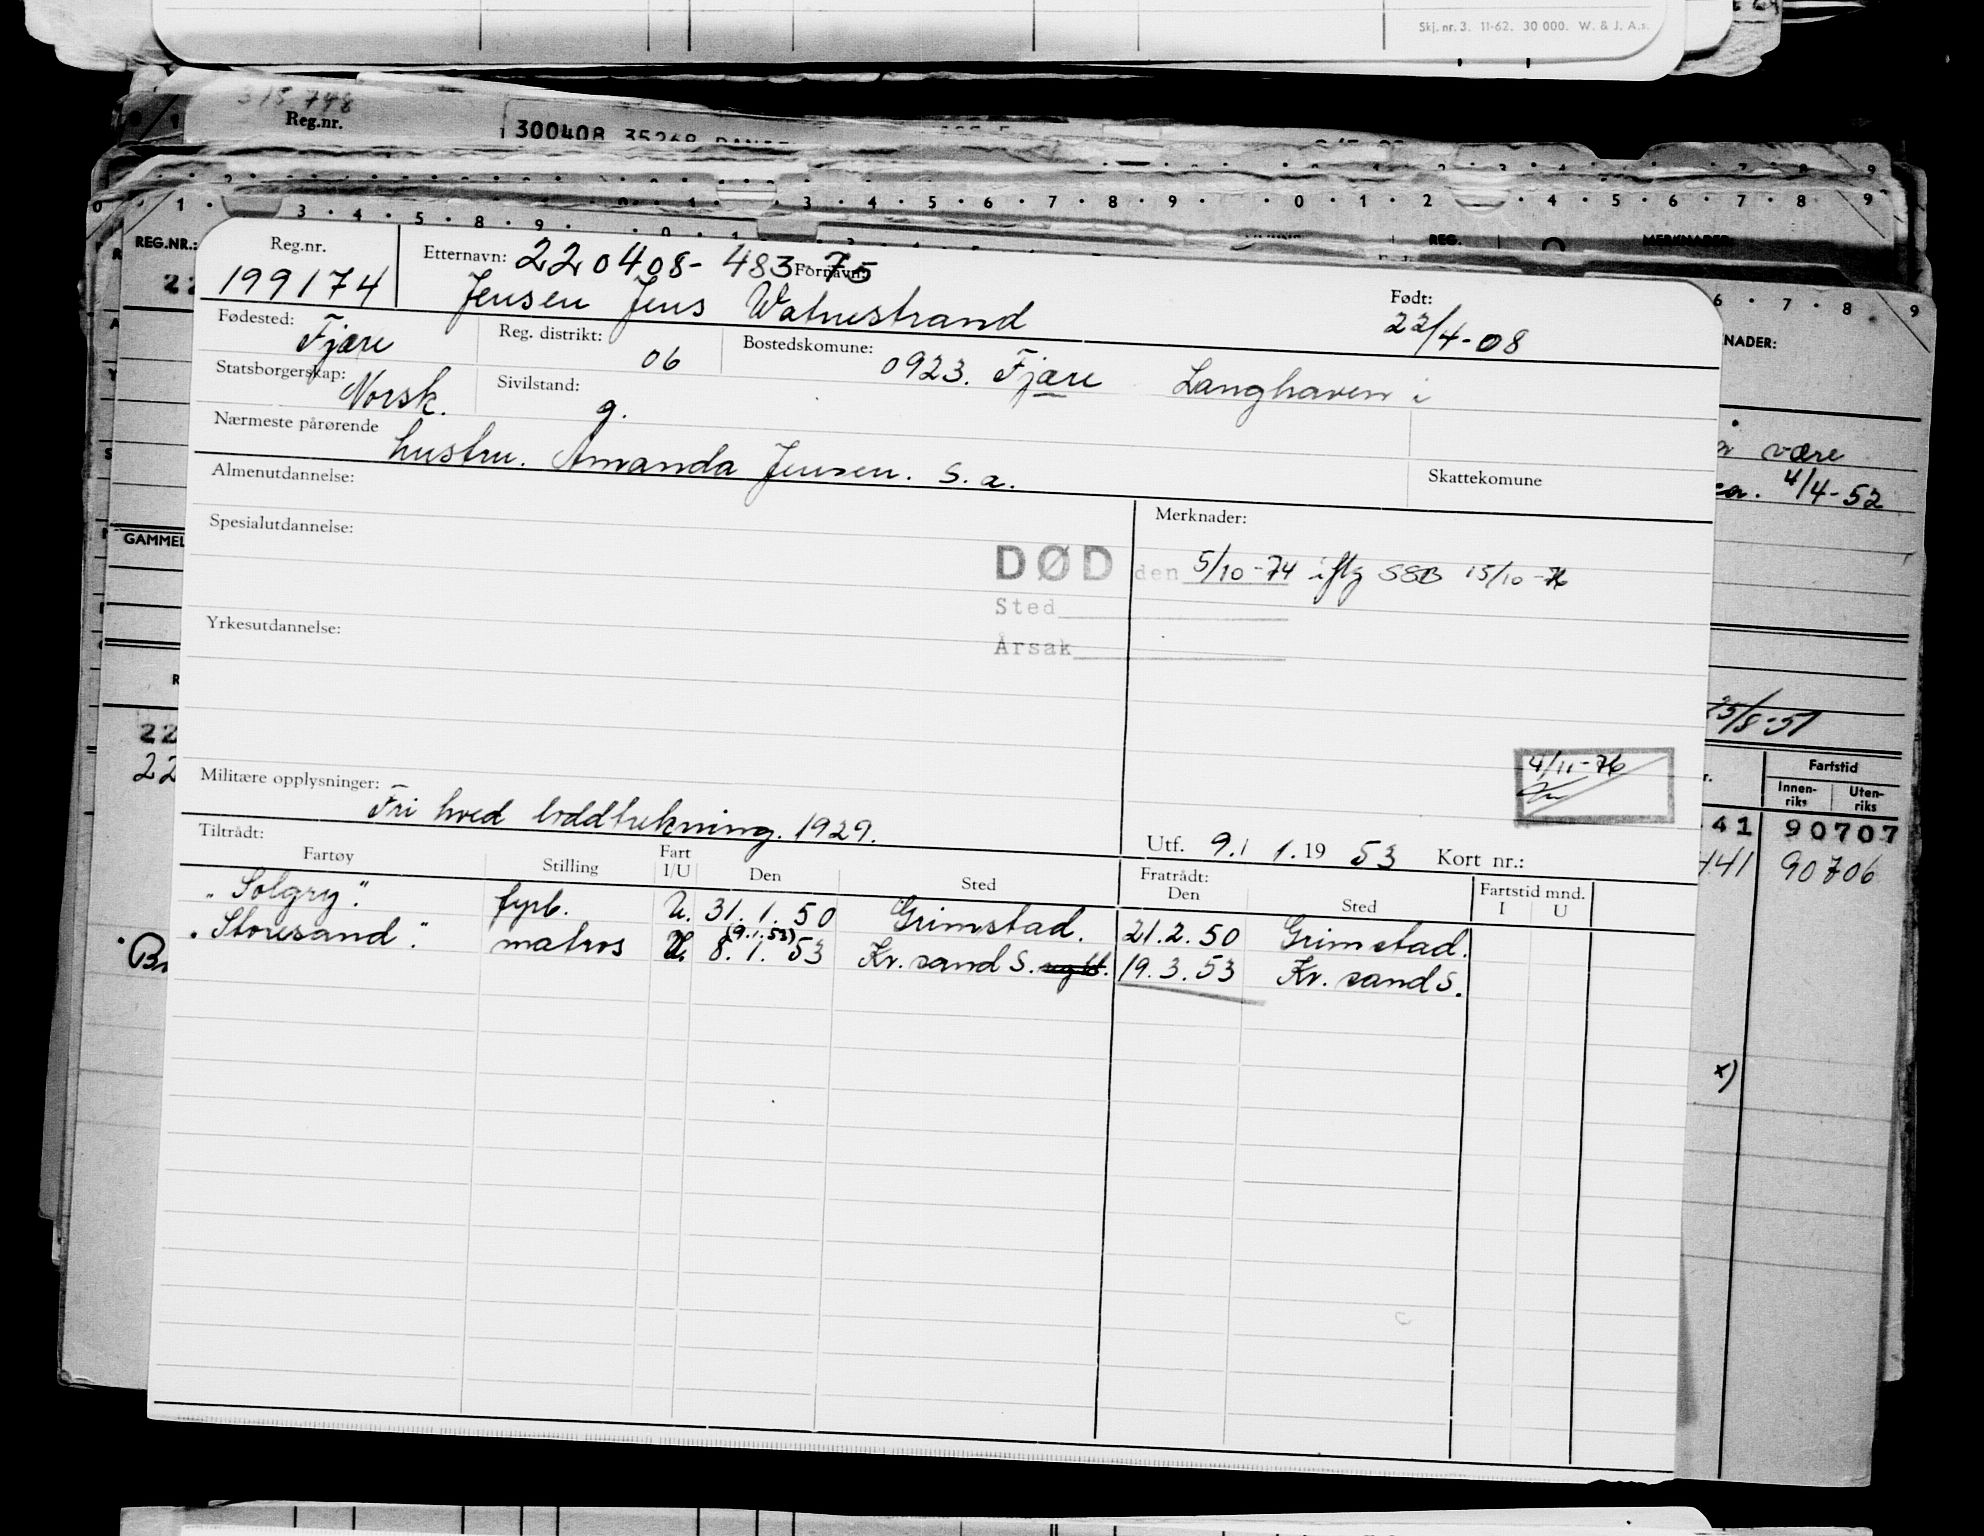 Skj. nr. 3. 11-62. 30 000. W. & J. A.s.
315 748
Reg.nr.
300408 35268
REG.NR.:
Reg.nr.
199174
Etternavn: 220408-48375 Fornavn:
Jensen Jens Watnestrand
Født:
22/4-08
Fødested:
Fjære
Reg. distrikt:
06
Bostedskomune:
0923. Fjære Langhaven i
Statsborgerskap:
Norsk.
Sivilstand:
g.
Nærmeste pårørende
hustru. Amanda Jensen. S. a.
Almenutdannelse:
Skattekomune
Spesialutdannelse:
Merknader:
DØD den 5/10-74 iflg SSB 15/10-76
Sted
Årsak
Yrkesutdannelse:
4/11-76
Militære opplysninger:
Fri hved loddtrekning. 1929.
Utf. 9. 1. 1953 Kort nr.:
Tiltrådt:
Fartøy Stilling Fart I/U Den Sted Fratrådt: Den Sted Fartstid mnd. I U
"Solgry." fyrb. U. 31. 1. 50 Grimstad. 21.2.50 Grimstad.
"Storesand." matros U. 8. 1. 53 (9.1.53) Kr. sand S. 19.3.53 Kr. sand S.
NADER:
være
4/4-52
GAMMEL
25/8-51
Fartstid
Innen-riks Uten-riks
41 90707
141 90706
x)